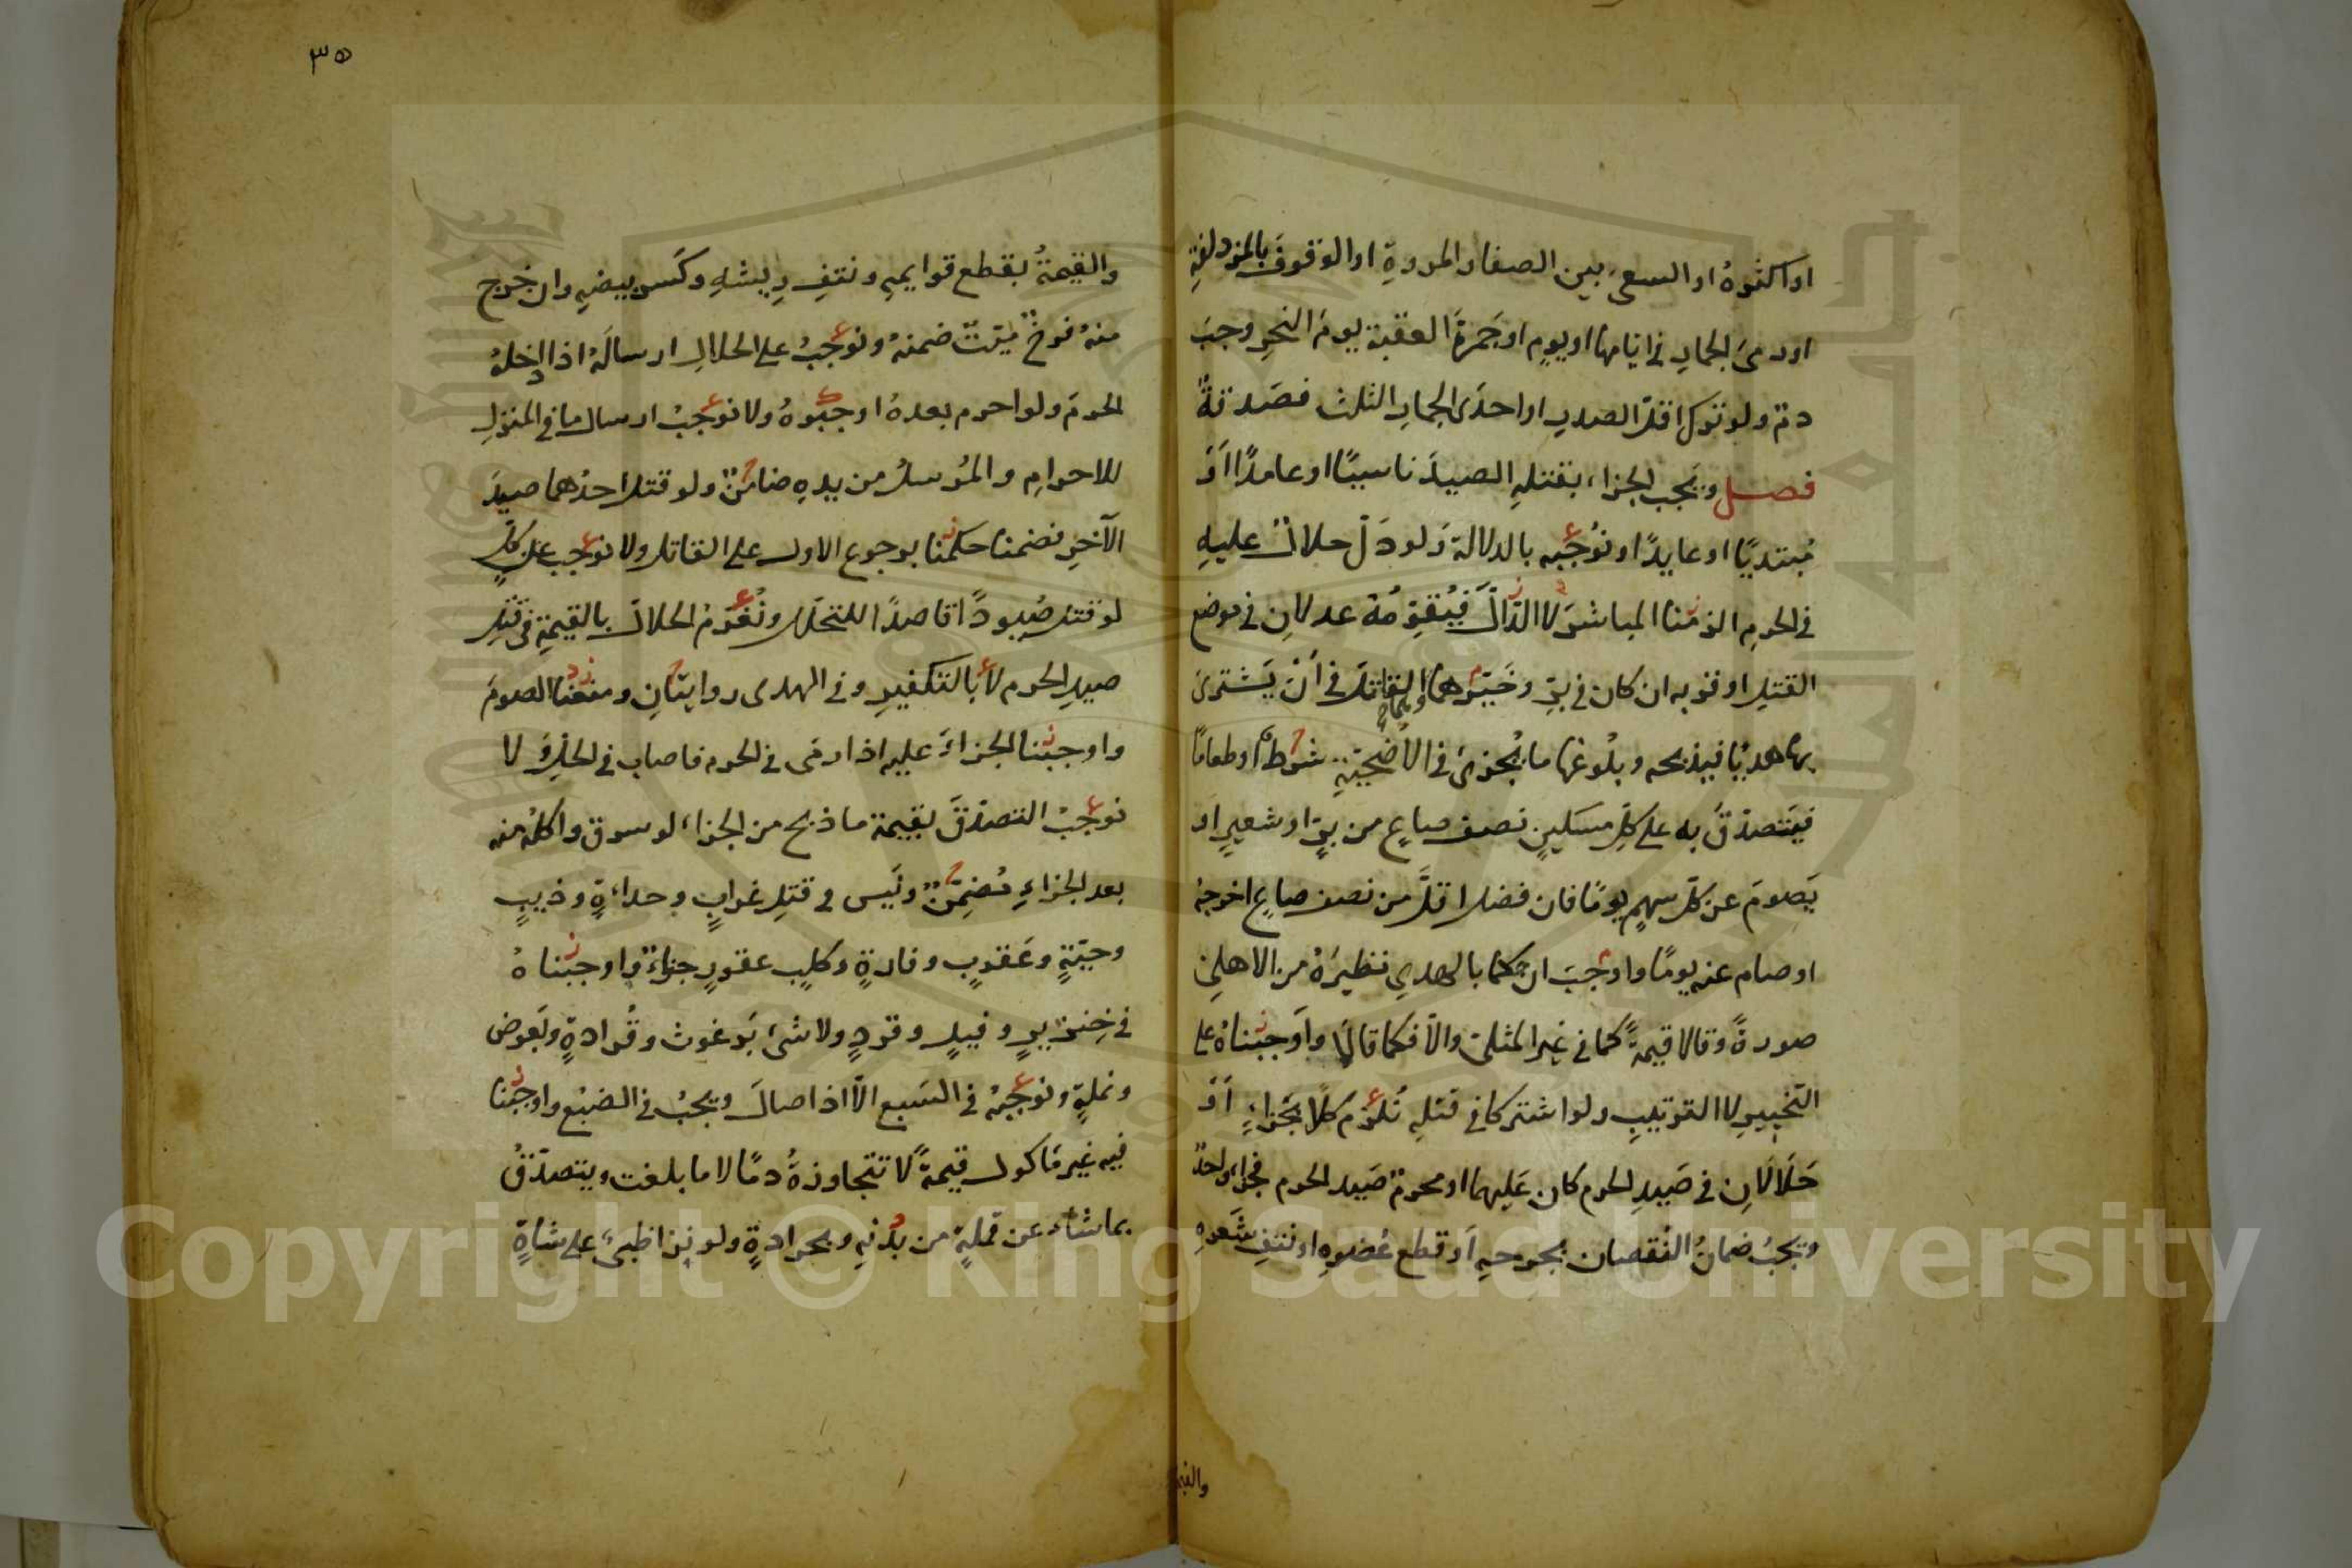 او اكثرهُ او السعى بين الصفا والمروةِ او الوقوفَ بالمزدلفةِ
او رمىَ الجمارِ فى ايامها او يومٍ او جَمرةَ العقبة يومَ النحرِ وجبَ
دمٌ ولو ترك اقلَّ الصدرِ او احدَى الجمارِ الثلث فصَدقةٌ
فصل ويَجب الجزاء بقتلِهِ الصيدَ ناسيًا او عامدًا اَوْ
مُبتديًا او عايدًا ونُوجبه بالدلالة وَلو دَلّ حلالٌ عليهِ
فى الحرمِ الزمنا المباشرَ لا الدّالَّ فيُقوِّمُهُ عدلانِ فى موضع
القتلِ او قربه ان كان فى برٍّ وخَيّرا القاتلَ فى اَنْ يَشترىَ
بها هديًا فيذبحه وبلُوغها ما يُجزئ فى الاُضحِيَّةِ شرطٌ او طعامًا
فيَتصدّقَ به على كلِّ مسكينٍ نصف صاعٍ من برٍّ او شعيرٍ او
يَصومَ عن كلِّ سهمٍ يومًا فان فضل اقلَّ من نصف صاعٍ اخرجهُ
او صام عنه يومًا واوجبَ ان حكما بالهدىِ نظيرَهُ من الاهلىِّ
صورةً وقالا قيمةً كما فى غير المثلىّ والّا فكما قالا واَوجبناهُ على
التخييرِ لا الترتيبِ ولو اشتركا فى قتلِهِ نُلزمُ كلًّا بجَزاءٍ اَوْ
حَلَالَانِ فى صَيدِ الحرم كان عَليهما او محرمٌ صَيد الحرم فجزاءٌ واحدٌ
ويجبُ ضمانُ النُقصان بجرحهِ اَو قطع عُضوِهِ او نتفِ شَعرهِ
والقيمة
٣٥
والقيمةُ بقطع قوايمهِ ونتفِ رِيشهِ وكَسرِ بيضهِ وان خرج
منهُ فرخٌ ميّتٌ ضمنهُ ونُوجبُ على الحلالِ ارسالَهُ اذا ادخلهُ
الحرمَ ولو احرم بعدهُ اوجبوهُ ولا نوجبُ ارسال ما فى المنزلِ
للاحرامِ والمُرسلُ من يدهِ ضامنٌ ولو قتل احدُهما صيدَ
الآخرِ فضمنا حكمنا برجوع الاول على القاتل ولا نوجب على كلٍّ
لو قتل صُيودًا قاصدًا للتحلّل ونُغرّمُ الحلالَ بالقيمةِ فى قتلِ
صيدِ الحرم لا بالتكفيرِ وفى الهدى روايتانِ ومنعنا الصومَ
واوجبنا الجزاءَ عليه اذا رمَى فى الحرم فاصاب فى الحلِّ ولا
نوجبُ التصدّقَ بقيمة ما ذبح من الجزاء لو سرق واكلُهُ منه
بعد الجزاءِ مُضمِّنٌ وليس فى قتلِ غرابٍ وحداءةٍ وذيبٍ
وحيّةٍ وعَقربٍ وفارةٍ وكلبٍ عقورٍ جزاءٌ واوجبناهُ
فى خِنزيرٍ وفيلٍ وقردٍ ولا شىء بَرغوث وقُرادةٍ وبَعوض
ونملةٍ ونوجبهُ فى السَبع الّا اذا صالَ ويجبُ فى الضبُع واوجبنا
فيه غيرَ مَاكول قيمةً لا تتجاوزهُ دمًا لا ما بلغت ويتصدّقُ
بما شاءَ عن قملةٍ من بَدنهِ وبجرادةٍ ولو نزا ظبىٌ على شاةٍ
Copyright © King Saud University